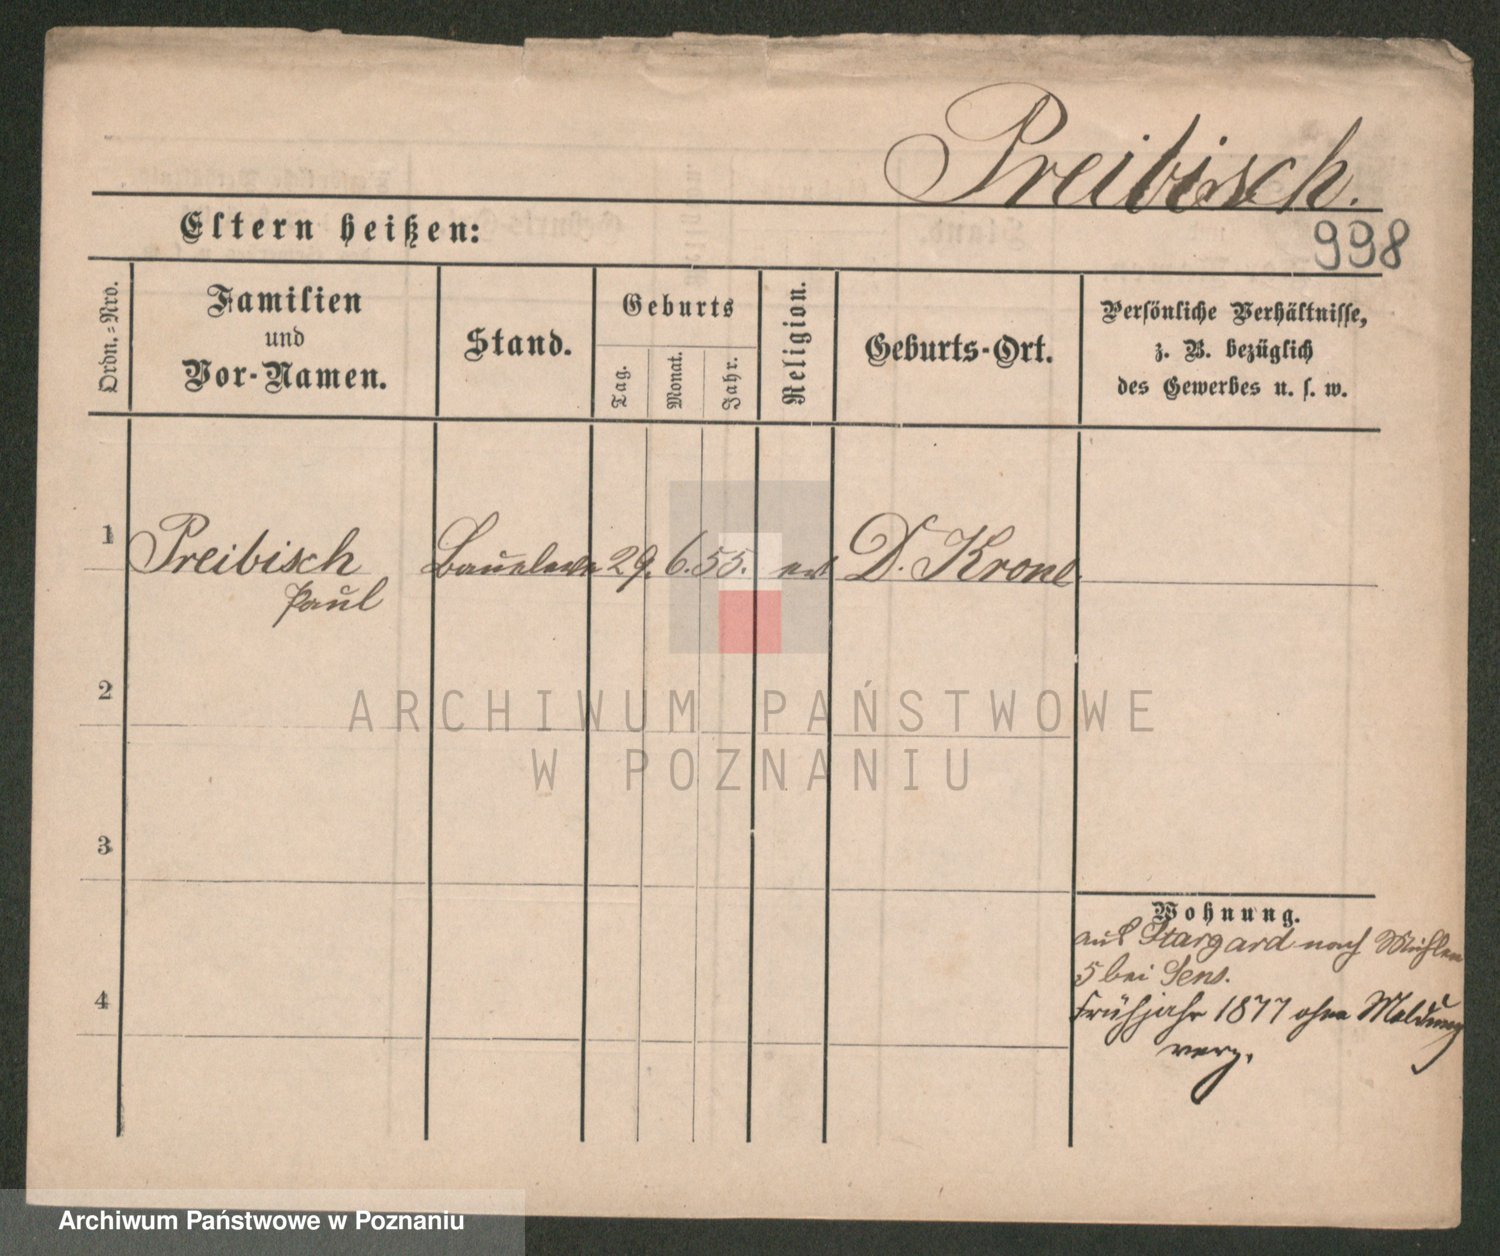 Preibisch.
998
Eltern heißen:
Ordn.-Nro.
Familien
und
Vor-Namen.
Stand.
Geburts
Tag.
Monat.
Jahr.
Religion.
Geburts-Ort.
Persönliche Verhältnisse,
z. B. bezüglich
des Gewerbes u. s. w.
1 Preibisch Baueleve 29. 6. 55. D. Krone
Paul
2
ARCHIWUM PAŃSTWOWE
W POZNANIU
3
Wohnung.
aus Stargard nach Mühlen
5 bei Sens.
4
Frühjahr 1877 ohne Meldung
verz.
Archiwum Państwowe w Poznaniu